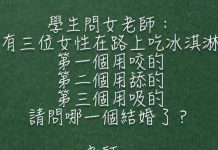 學生問女老師：
有三位女性在路上吃冰淇淋
第一個用咬的
第二個用舔的
第三個用吸的
請問哪一個結婚了？